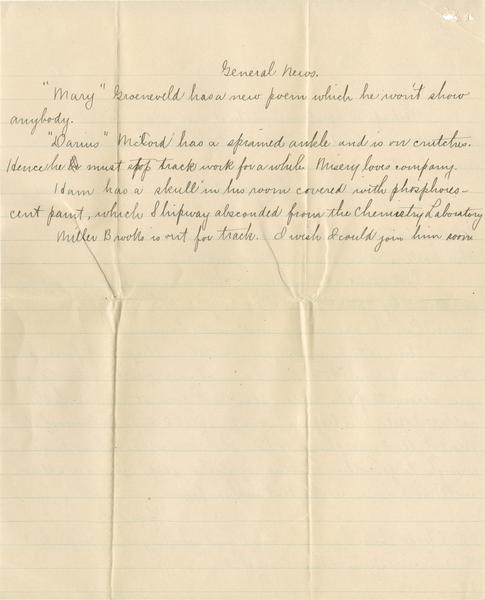 General News.
"Mary" Groeneveld has a new poem which he won't show
anybody.
"Darius" McCord has a sprained ankle and is on crutches.
Hence he must stop track work for a while. Misery loves company.
Ham has a skull in his room covered with phosphores-
cent paint, which Shipway absconded from the Chemistry Laboratory
Miller Brooks is out for track. I wish I could join him soon